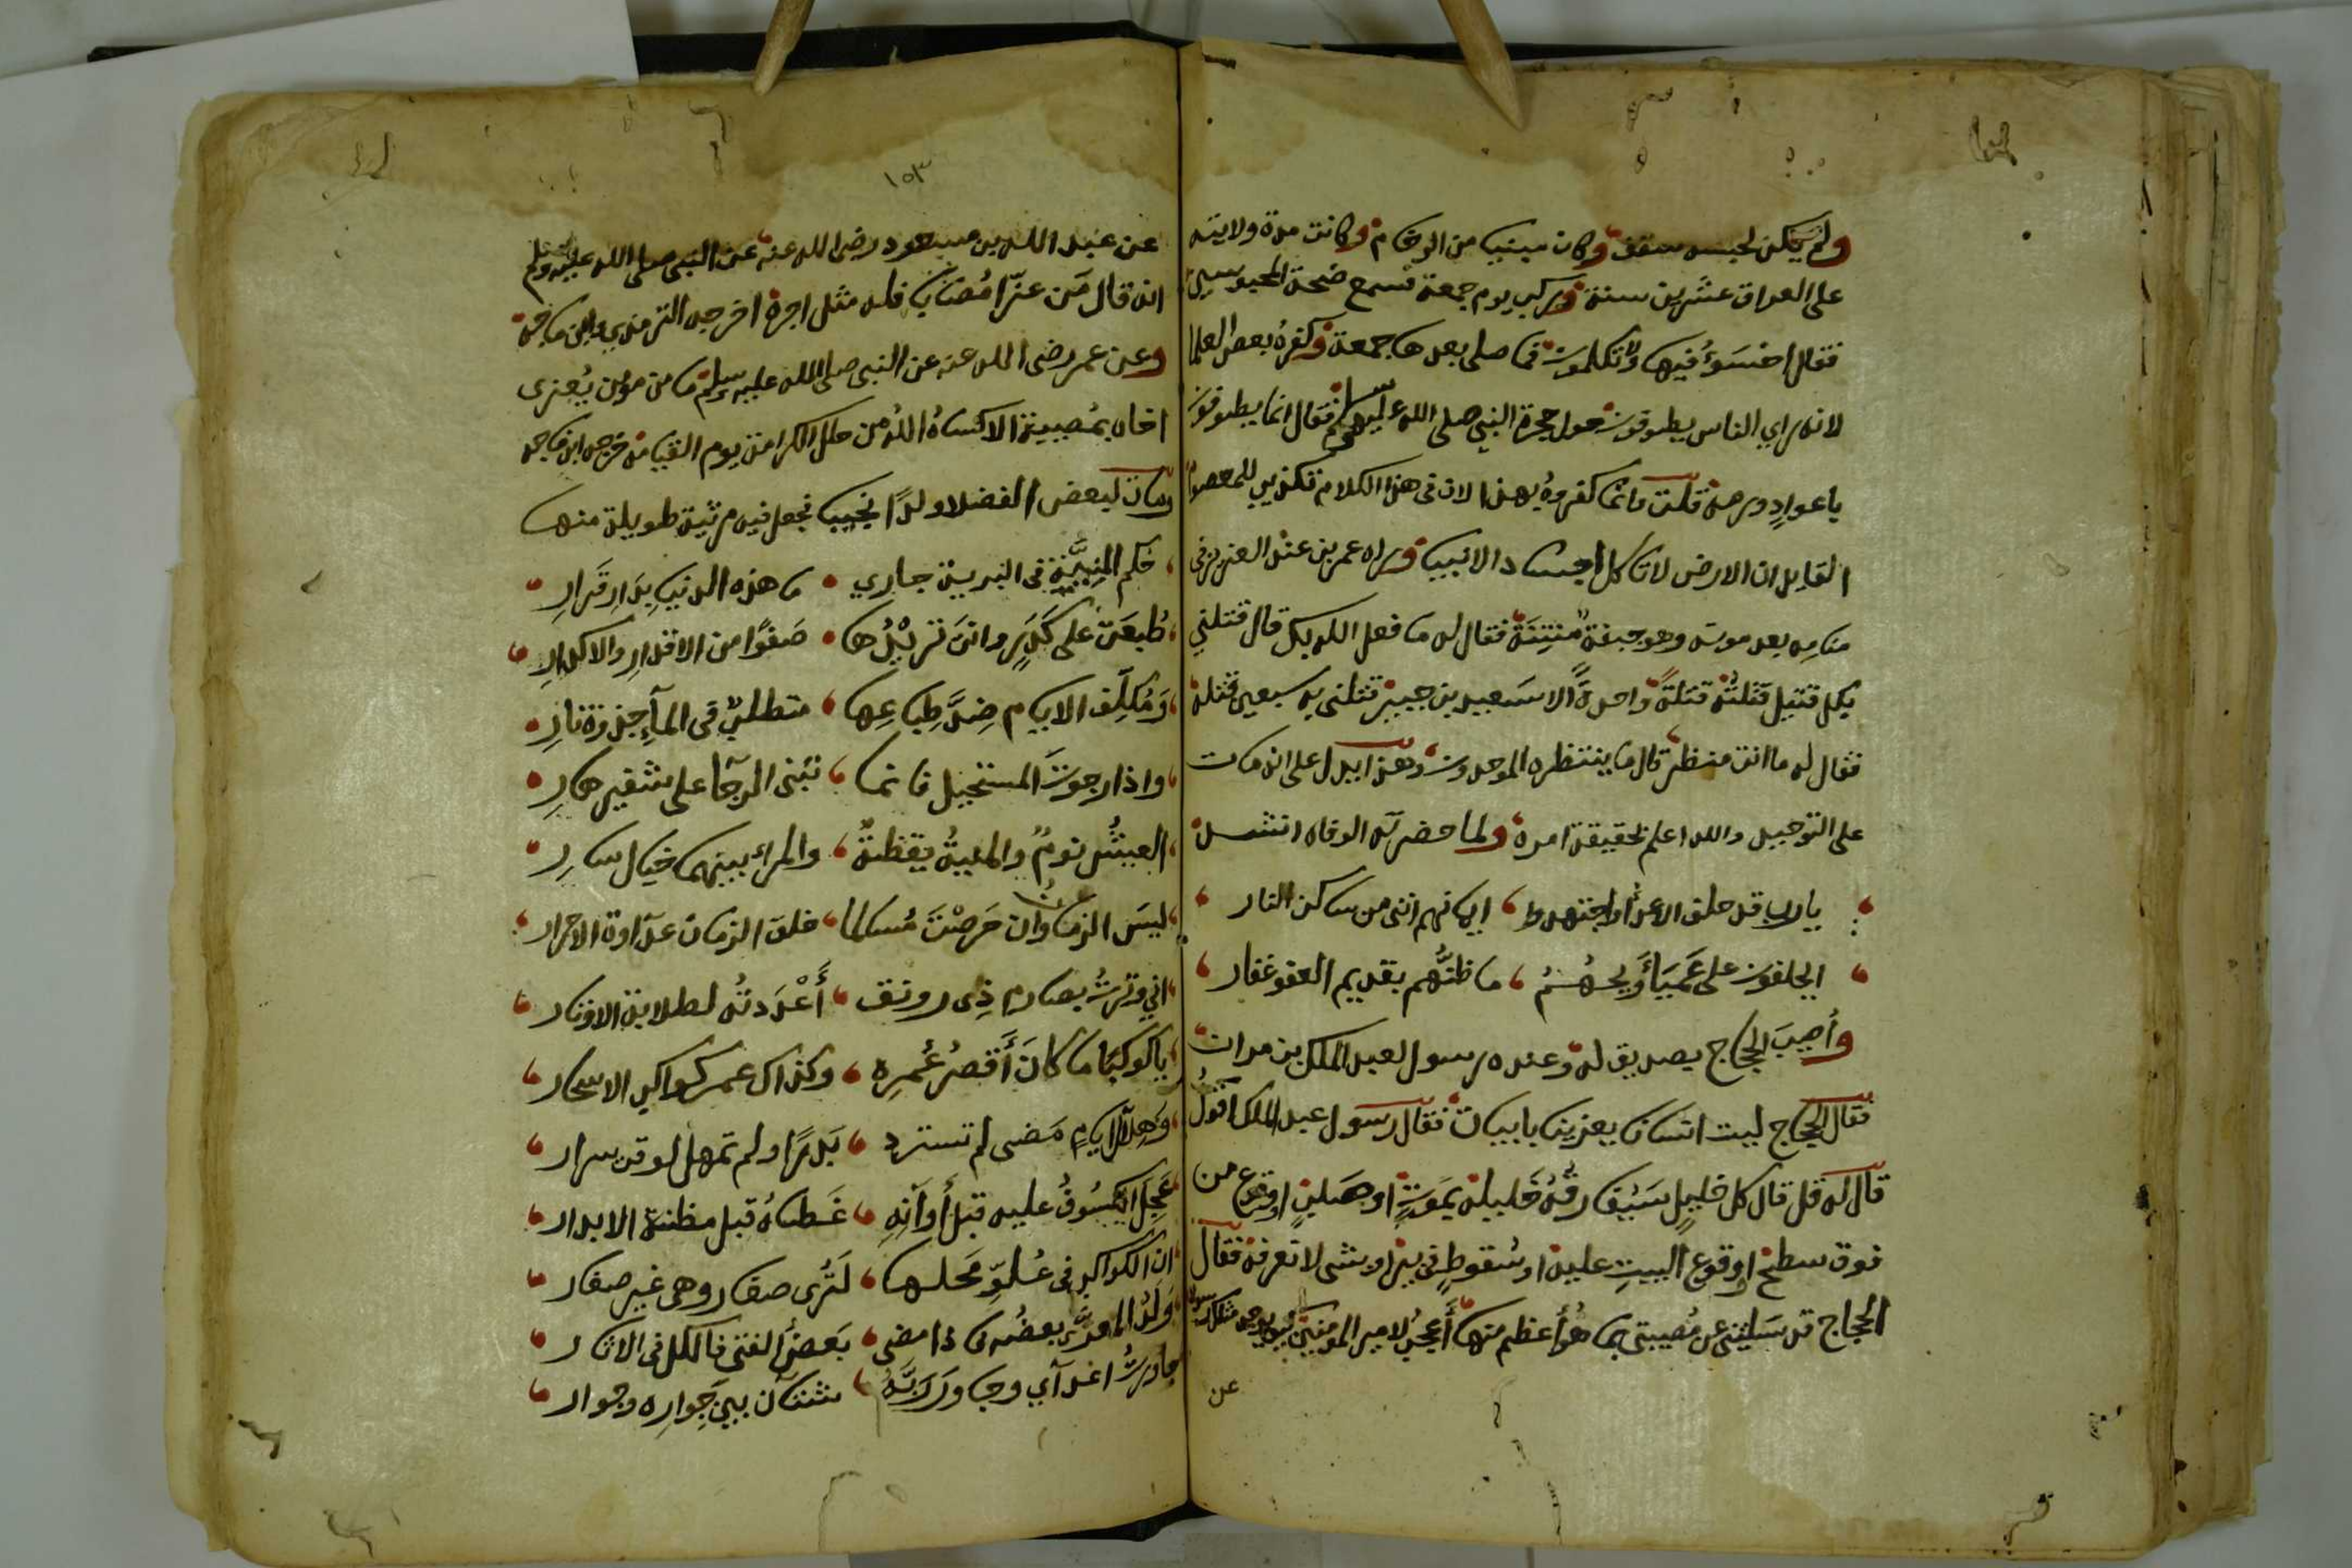 ولم يكن لحبسه سقف وكان مبنيا من الرخام وكانت مدة ولايته
على العراق عشرين سنة وركب يوم جمعة فسمع ضجة المحبوسين
فقال اخسؤا فيها ولا تكلمون فما صلى بعدها جمعة وكفره بعض العلما
لانه راي الناس يطوفون حول حجرة النبي صلى الله عليه وسلم فقال انما يطوفون
باعواد ورمة قلت وانما كفروه بهذا لان في هذا الكلام تكذيبا للمعصوم
القايل ان الارض لا تاكل اجساد الانبيا وراه عمر بن عبد العزيز في
منامه بعد موته وهو جيفة مُنتِنَة فقال له ما فعل الله بك قال قتلني
بكل قتيل قتلتُه قتلةً واحدةً الا سَعيد بن جبير قتلني به سبعين قتلة
فقال له ما انت منتظر قال ما ينتظره الموحدون وهذا يدل على انه مات
على التوحيد والله اعلم بحقيقة امره ولما حضرته الوفاه انشد
يارب قد حلف الاعدا واجتهدوا ايمانهم انني من ساكن النار
ايحلفون على عَميَاءَ ويحهُمُ ما ظنُّهم بقديم العفو غفار
وأصيبَ الحجاج بصديق له وعنده رسول لعبد الملك بن مروان
فقال الحجاج ليت انسانا يعزينا بابيات فقال رسول عبد الملك اقولُ
قال له قل قال كل خليل سَيُفارقُهُ خليله بمَوتٍ او صلبٍ او وقوع من
فوق سطح او وقوع البيتِ عليه او سُقوطٍ في بئر او بشى لا نعرفه فقال
الحجاج قد سَليتني عن مُصيبتي بما هُو أعظم منها أعجبُ لامير المومنين يوجه مثلك رسولا
عن
١٥٣
عن عبد الله بن مسعود رضى الله عنه عن النبي صلى الله عليه وسلم
انه قال مَن عزّا مُصَابا فله مثل اجره اخرجه الترمذي وابن ماجه
وعن عمر رضى الله عنه عن النبي صلى الله عليه وسلم ما من مومن يُعزى
اخاه بمُصيبة الا كساهُ اللهُ من حلل الكرامة يوم القيامة خرجه ابن ماجه
ومات لبعض الفضلا ولدًا نجيبا فجعل فيه مرثية طويلة منها
حكم المنِيَّةِ في البرية جاري ما هذه الدنيا بِدَارِ قَرَارِ
طُبعَت على كَدَرٍ وانتَ تريْدُها صَفوًا من الاقذارِ والاكدارِ
وَمُكلِّف الايام ضِدَّ طِباعِها متطلبٌ في المآءِ جذوةَ نارِ
واذا رجوتَ المستحيل فانما تبني الرجآ على شفيرِ هارِ
العيشُ نومٌ والمنيةُ يقظةٌ والمرء بينهما خيال سارِ
ليسَ الزمان وان حَرصْتَ مُسالما خلق الزمان عدآوة الاحرار
اني وُترتُ بصارمٍ ذِى رونق أَعْدَدتُه لطلابة الاوتار
ياكوكبًا ما كانَ أَقصَرَ عُمرِه وكذاك عمر كواكب الاسحار
وَهلآل ايامٍ مَضى لم تستدر بَدرًا ولم تمهل لوقت سرار
عَجِلَ الكسُوفُ عليه قبل أوآنِهِ غَطاهُ قبل مظنة الابدار
ان الكواكب في عُلوِّ مَحلها لَتُرى صغار وهى غير صغار
وَلدُ المعزَّى بعضُه فاذا مضى بَعضُ الفتى فالكل في الاثار
جاورتُ اعدآي وجاورَ رَبَّهُ شتان بينَ جِوارِه وجوار